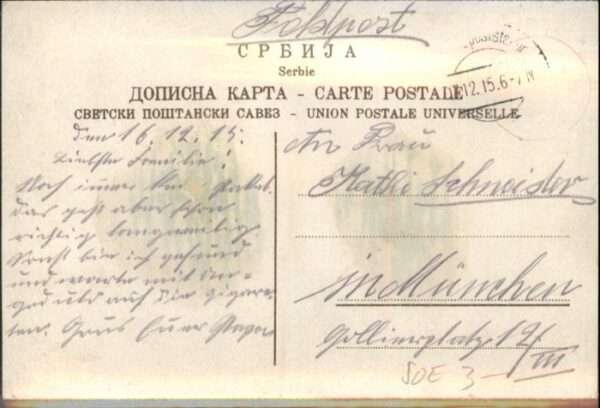 Feldpost
СРБИЈА
Serbie
ДОПИСНА КАРТА - CARTE POSTALE
СВЕТСКИ ПОШТАНСКИ САВЕЗ - UNION POSTALE UNIVERSELLE
12.15.6-7 N
den 16.12.15.
Liebste Familie!
Noch immer kein Paket.
das geht aber schon
richtig langweilig
Sonst bin ich gesund
und warte mit
auf die Zigaret-
ten. Gruss Euer Papa
An Frau
Kathi Schneider
in München
Gollierplatz 12/
III
SOE 3-